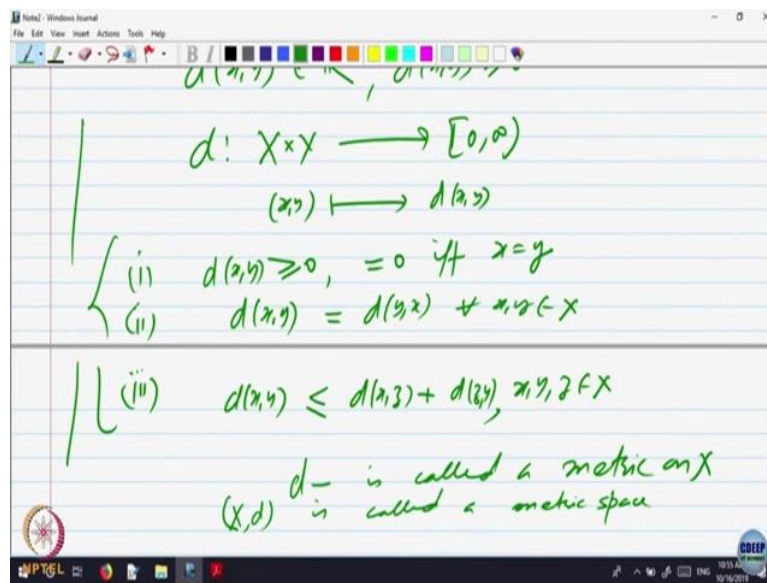 Note2 - Windows Journal
File Edit View Insert Actions Tools Help
B I
d(x,y) ∈ ℝ, d(x,y) ≥ 0
d: X×X ⟶ [0,∞)
(x,y) ⟼ d(x,y)
(i) d(x,y) ≥ 0, = 0 iff x=y
(ii) d(x,y) = d(y,x) ∀ x,y ∈ X
(iii) d(x,y) ≤ d(x,z) + d(z,y), x,y,z ∈ X
d – is called a metric on X
(X,d) is called a metric space
NPTEL
CDEEP
IIT BOMBAY
ENG
10:55 AM
10/16/2019